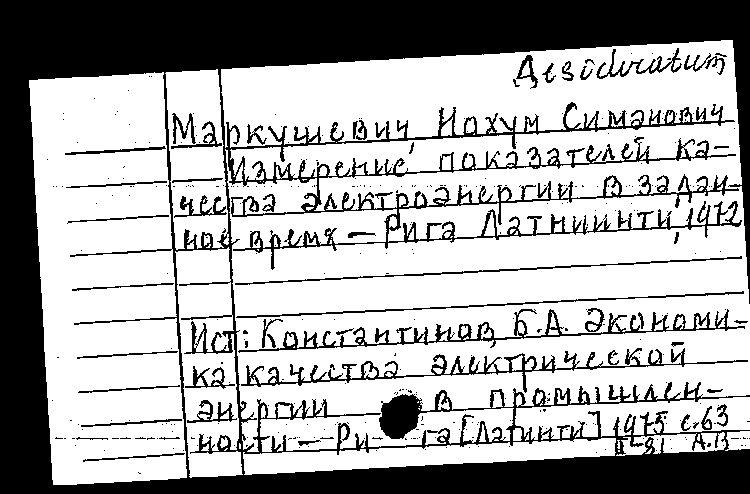 Desideratum
Маркушевич, Нохум Симанович
Измерение показателей ка-
чества электроэнергии в задан-
ное время – Рига Латниинти, 1972
Ист: Константинов, Б.А. Экономи-
ка качества электрической
энергии в промышлен-
ности – Рига [Латинти] 1975 с.63
II-81 А.В